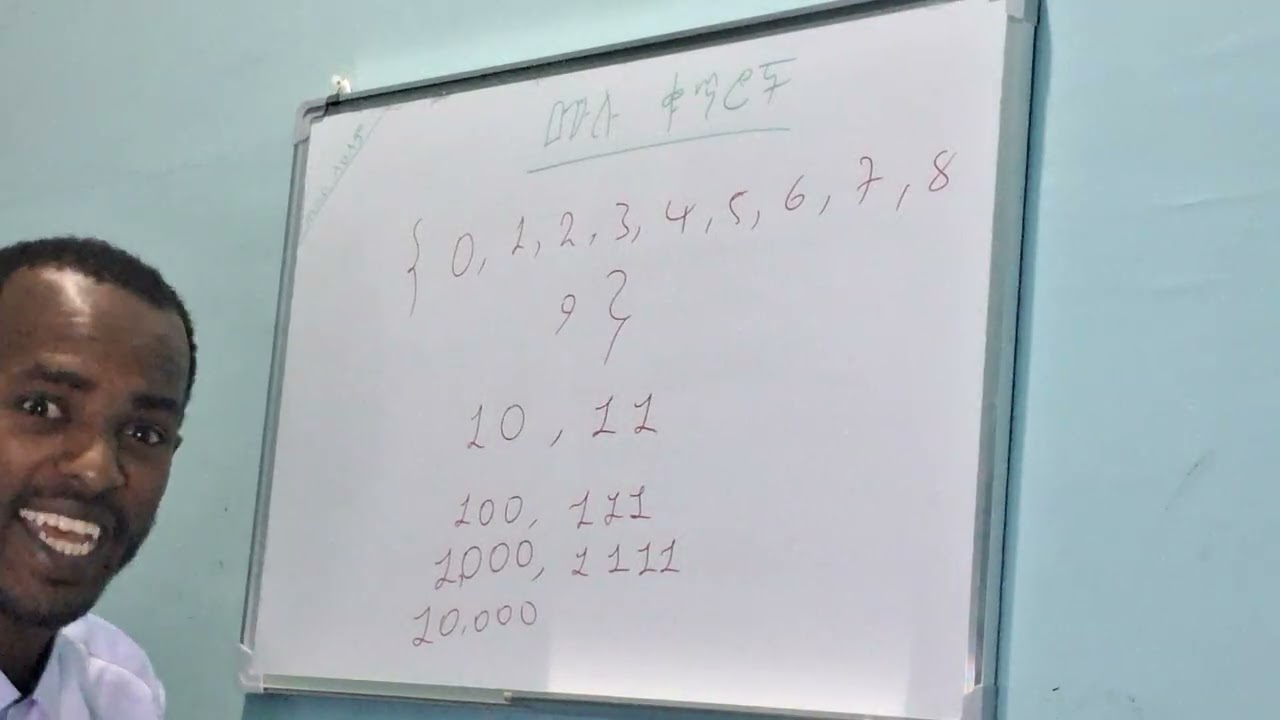 መሠረት ቀመሮች
{ 0, 1, 2, 3, 4, 5, 6, 7, 8
9 }
10 , 11
100, 111
1000, 1111
10,000